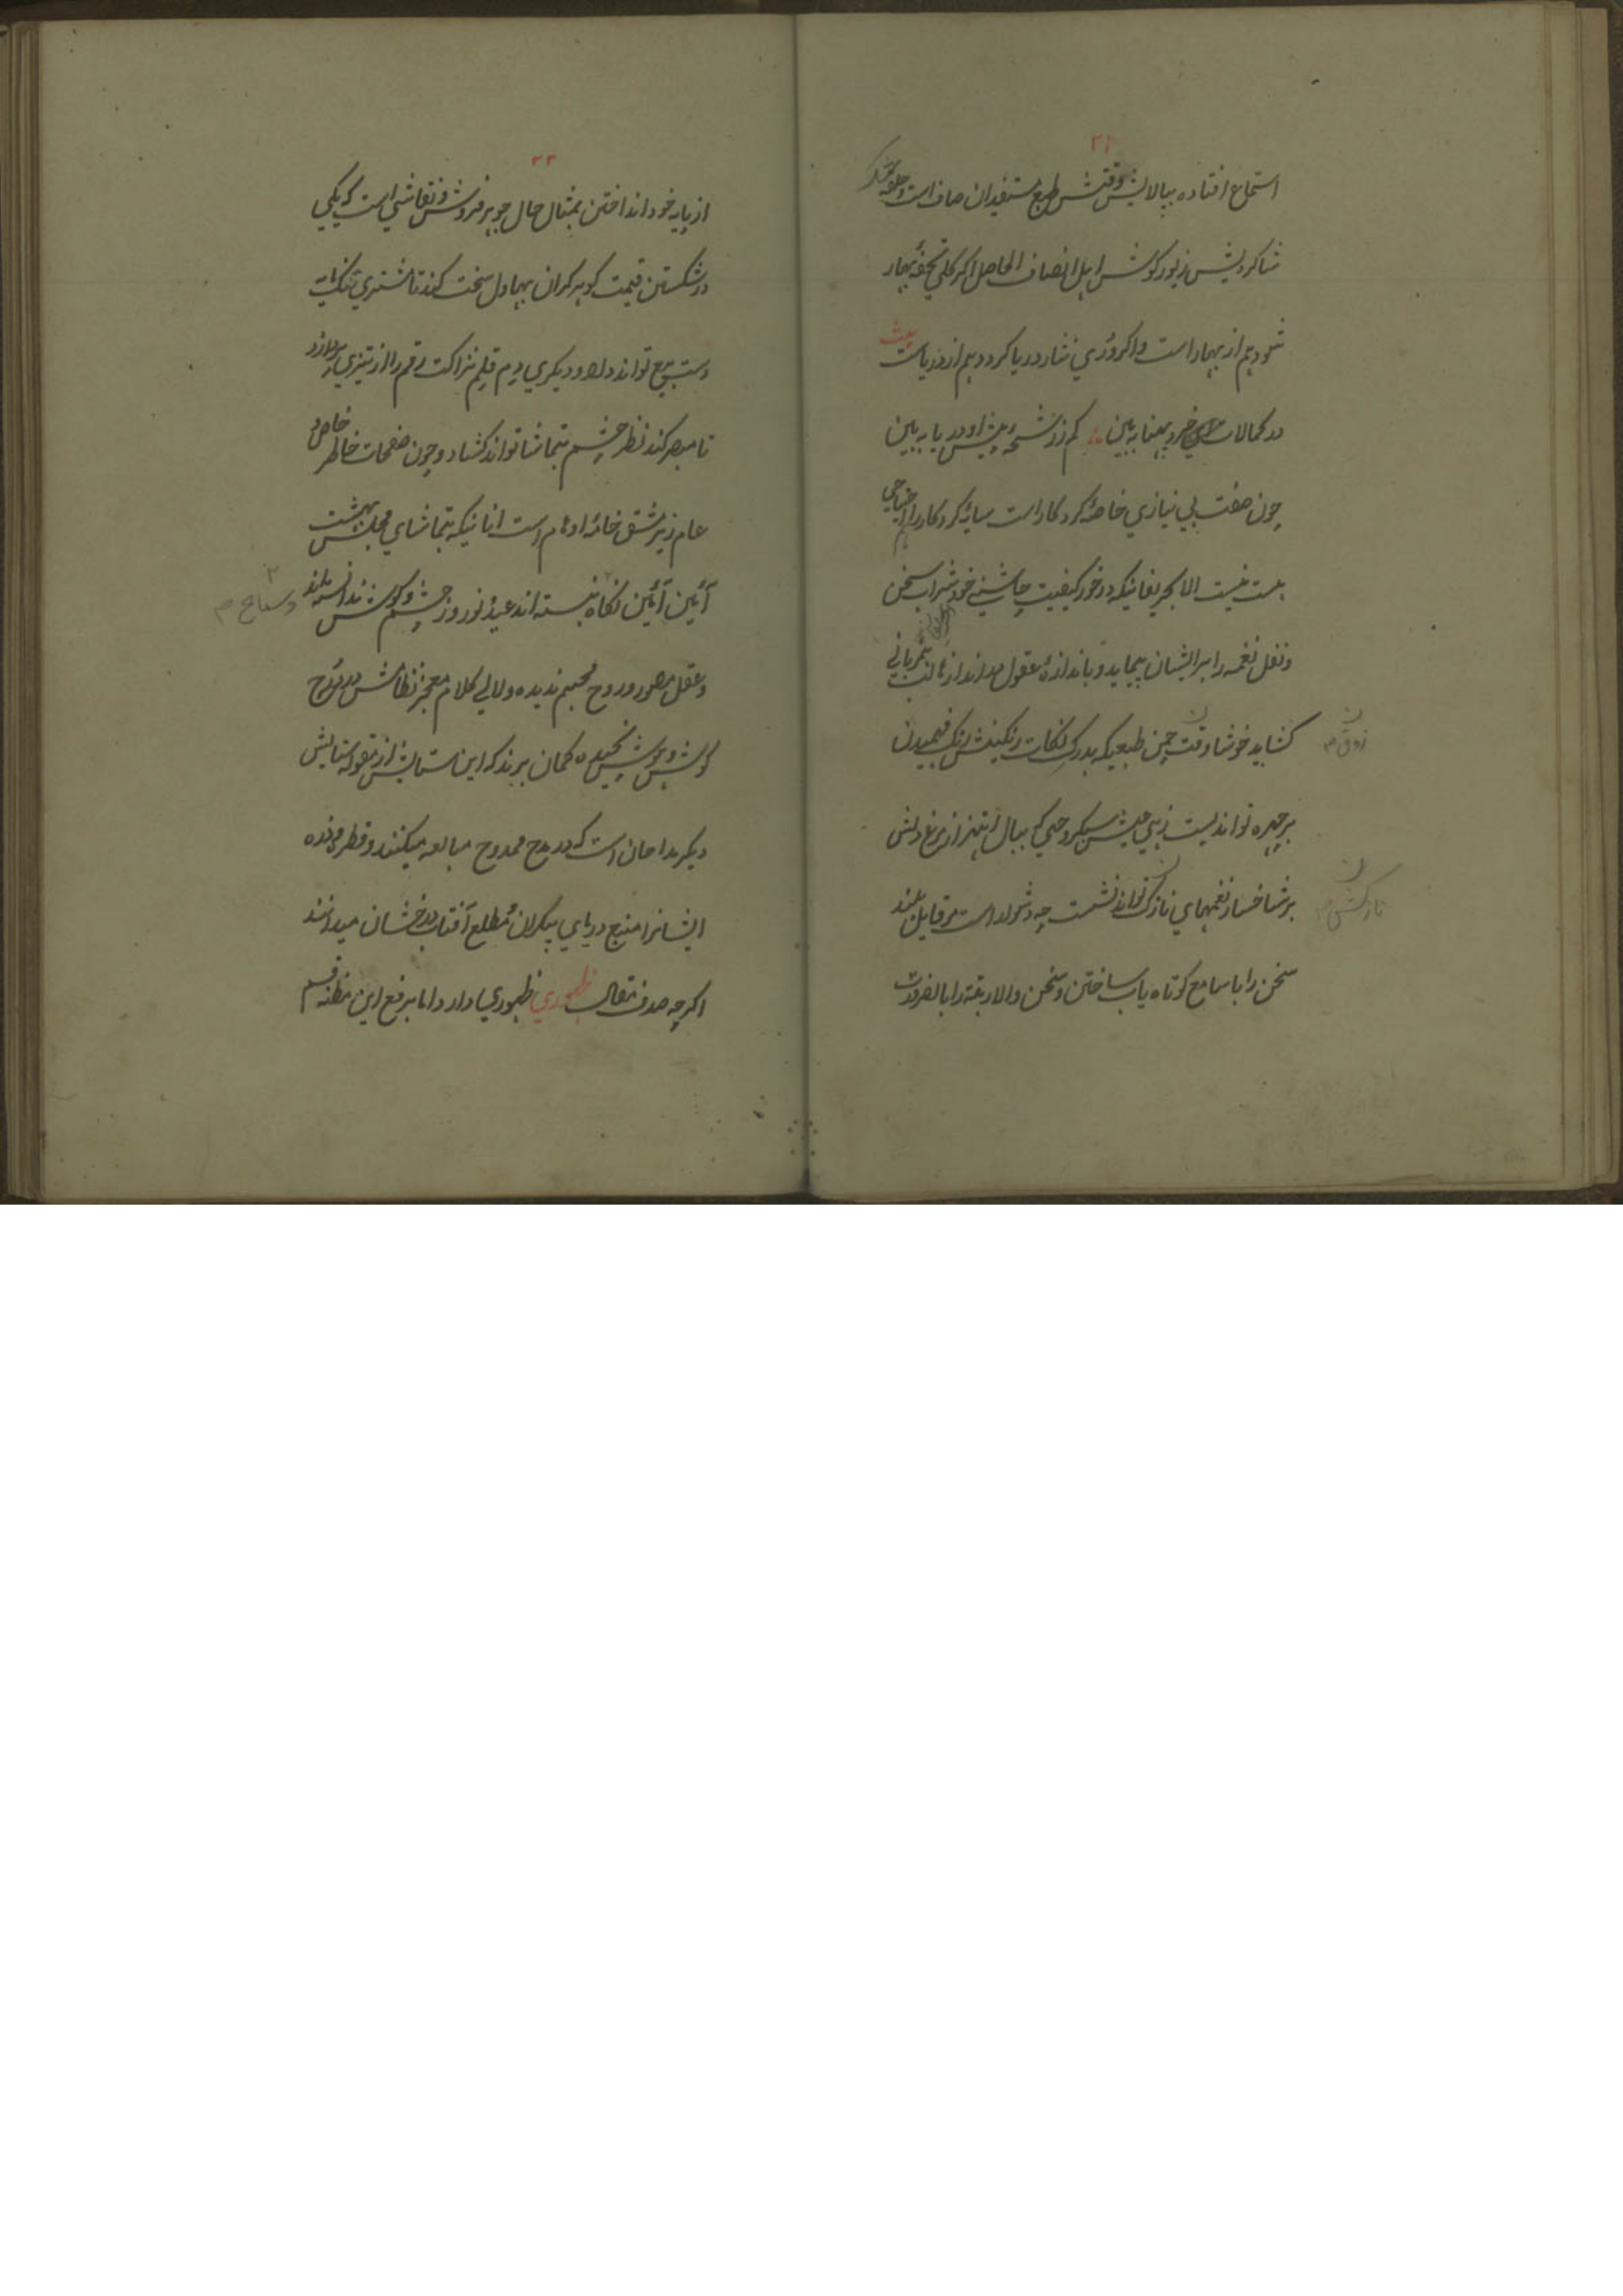 ۲۱
استماع افتاده بپالایش وقتش طبع مستفیدان صاف است و حلقه
شاکردیش زیور کوش اهل انصاف الحاصل اکر کلی تحفهٔ بهار
شود هم از بهار است و اکر دُری نثار دریا کردد هم از دریاست بیت
در کمالات خرد بهنا به بین کم ز رشحهٔ پیش او دریا به بین
چون صفت بی نیازی خاصهٔ کردکار است سایهٔ کردکار را احتیاجی هم
هست نیست الا بحریفانیکه در خور کیفیت چاشنی خود شراب سخن
و نقل نغمه را بر ایشان پیماید و باندازهٔ عقول لب بثمربانی
کشاید خوشا وقت چمن طبعیکه بدرک نکات رنکینش رنک فهمیدن
ذوق
بر چهره تواند بست زهی عیش سبکروحی که ببال اهتزاز مرغ دلش
بر شاخسار نغمهای نازک تواند نشست چه دشوار است مر قایل بلند
نازکش
سخن را با سامع کوتاه یاب ساختن و سخن والا رتبه را بالضرورت
۲۲
از پایه خود انداختن بمثال حال جوهر فروش و نقاشی است که یکی
در شکستن قیمت کوهر کران بها دل سخت کند تا مشتری تنک مایه
دست بیع تواند داد و دیکری دم قلم نزاکت رقم را از تیزی بر دارد
تا مبصر کند نظر چشم بتماشا تواند کشاد و چون صفحات خاطر خاص و
عام زیر مشق خامهٔ اوهام است انانیکه بتماشای مجلس بهشت
آئین آئین نکاه نبسته اند عید و نوروز چشم و کوش ندانسته اند
و سماع
و عقل مصور و روح مجسم ندیده و لالی کلام معجز نظامش در درج
کوش و هوش نچیده کمان برند که این ستایش از مقوله ستایش
دیکر مداحان است که در مدح ممدوح مبالعه میکنند و قطره
ایشانرا منبع دریای بیکران و مطلع آفتاب درخشان میدانند
اکرچه صدف مقال ظهوری ظهوری دارد اما برفع این مظنه قسم